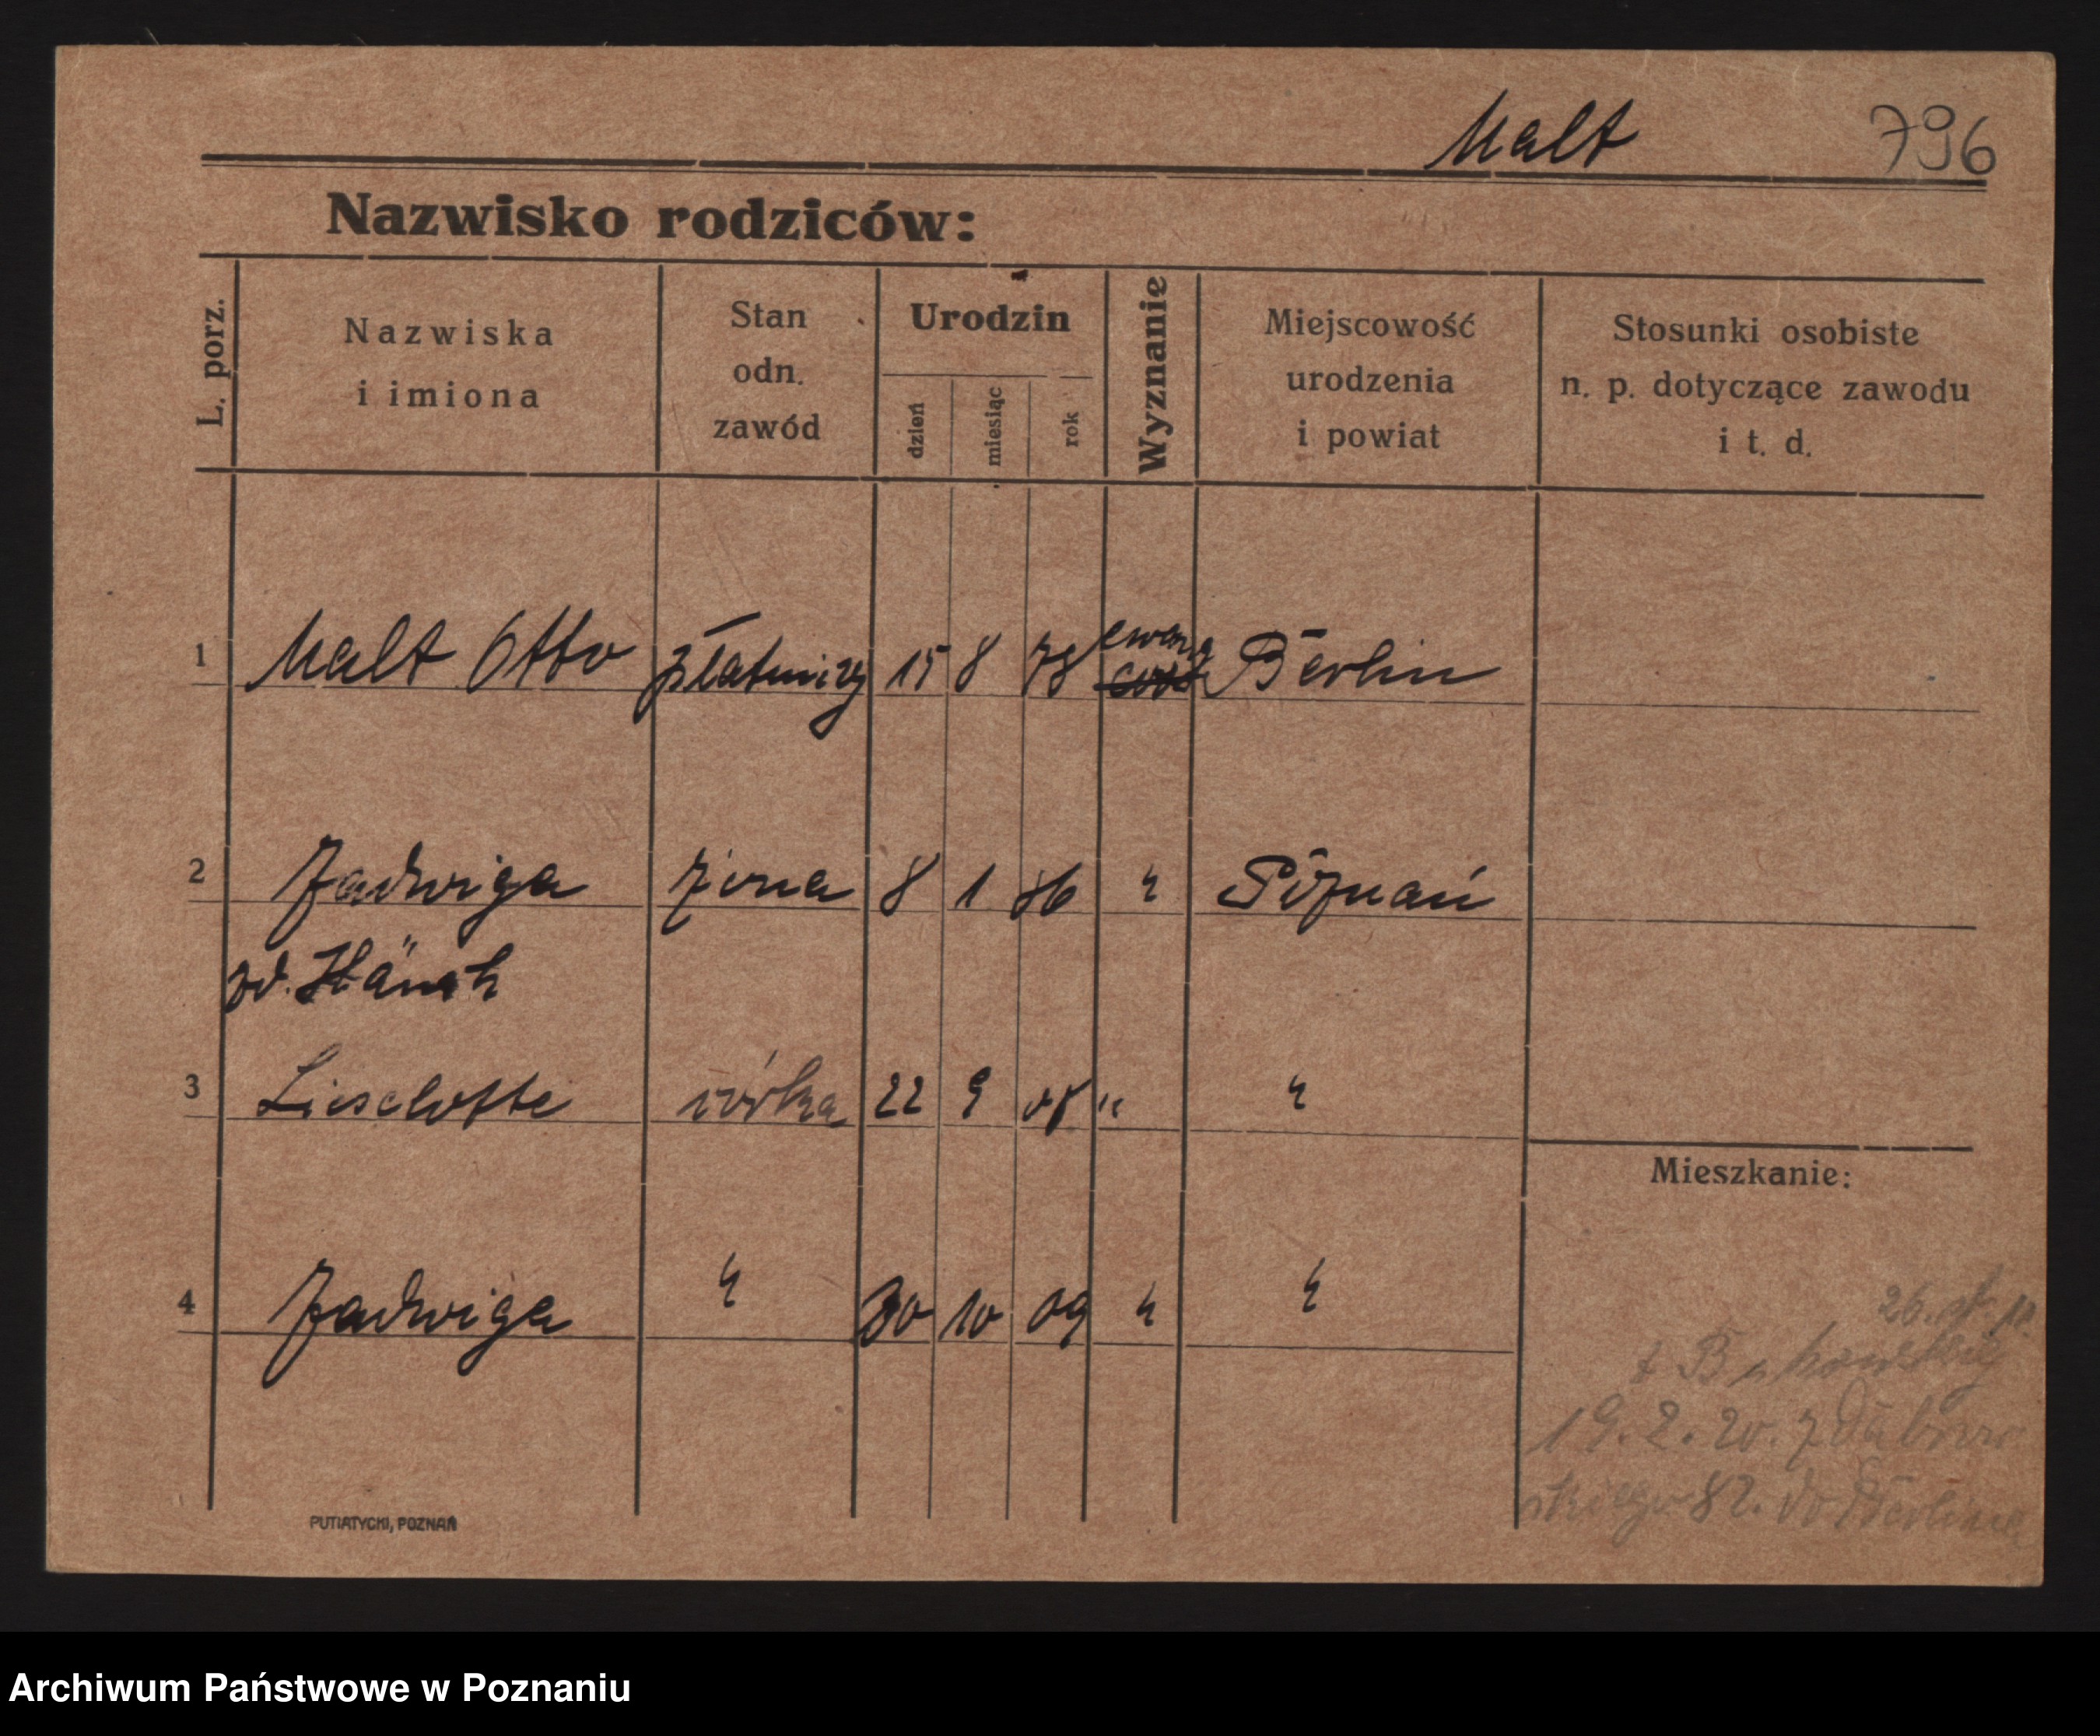 Malt 796
Nazwisko rodziców:
L. porz. Nazwiska i imiona Stan odn. zawód Urodzin dzień miesiąc rok Wyznanie Miejscowość urodzenia i powiat Stosunki osobiste n. p. dotyczące zawodu i t. d.
1 Malt Otto 15 8 78 ewang Berlin
2 Jadwiga żona 8 1 86 " Poznań
Lieselotte córka 22 9 " "
3
Mieszkanie:
4 Jadwiga " 30 10 09 " "
19. 2. 20. z Dąbrow
skiego 82. do Berlina
PUTIATYCKI, POZNAŃ
Archiwum Państwowe w Poznaniu